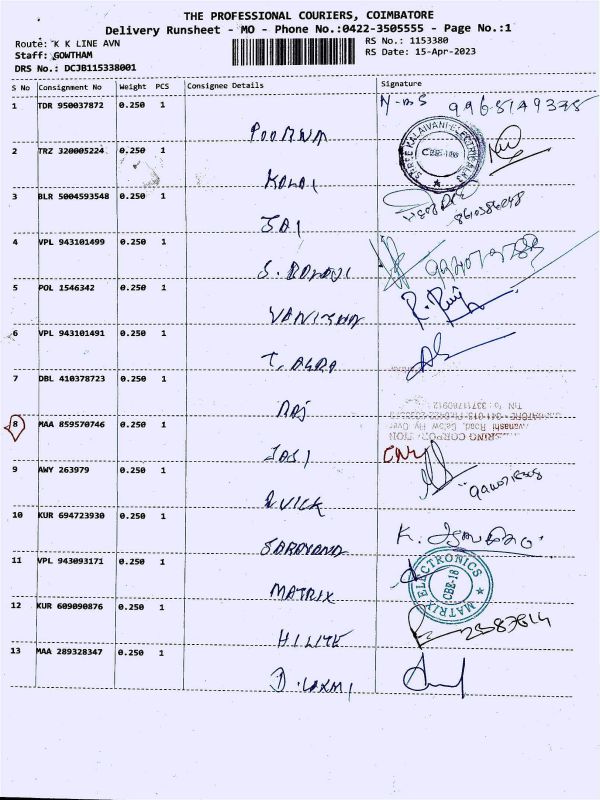 THE PROFESSIONAL COURIERS, COIMBATORE
Delivery Runsheet - MO - Phone No.:0422-3505555 - Page No.:1
Route: K K LINE AVN
RS No.: 1153380
Staff: GOWTHAM
RS Date: 15-Apr-2023
DRS No.: DCJB115338001
S No Consignment No Weight PCS Consignee Details Signature
1 TDR 950037872 0.250 1
2 TRZ 320005224 0.250 1
KALAI
SHREE KALAIVANI ELECTRICALS
3 BLR 5004593548 0.250 1
JAI
4 VPL 943101499 0.250 1
5 POL 1546342 0.250 1
VANITHA
6 VPL 943101491 0.250 1
7 DBL 410378723 0.250 1
RAJ
8 MAA 859570746 0.250 1
9 AWY 263979 0.250 1
QUICK
10 KUR 694723930 0.250 1
SARAVANA
11 VPL 943093171 0.250 1
MATRIX
MATRIX ELECTRONICS
CBE-18
12 KUR 609090876 0.250 1
HILITE
13 MAA 289328347 0.250 1
D. LAXMI